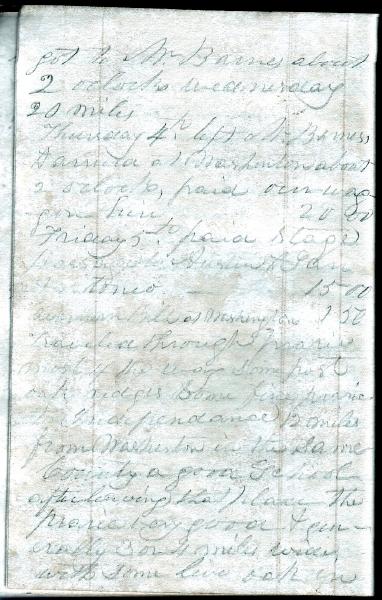 got to Mr Barnes about
2 oclock wednesday
20 miles
Thursday 4th left Mr Barnes,
at Washinton about
2 oclock, paid our wag
gon hire 20 00
Friday 5th paid stage
passage to Austin & San
Antonio — 15 00
Bill at Washington 1 50
traveled through prairie
most of the way some post
oak ridges some fine prairie
to Independance 12 miles
from Washinton in the same
County a good School
after leaving that place the
prarie very good & gen
erally 3 or 4 miles wide
with some live oak